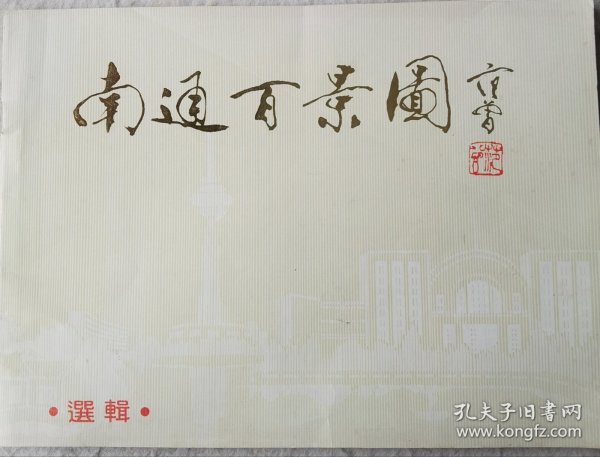 南通百景圖
范曾
•選輯•
孔夫子旧书网
www.kongfz.com